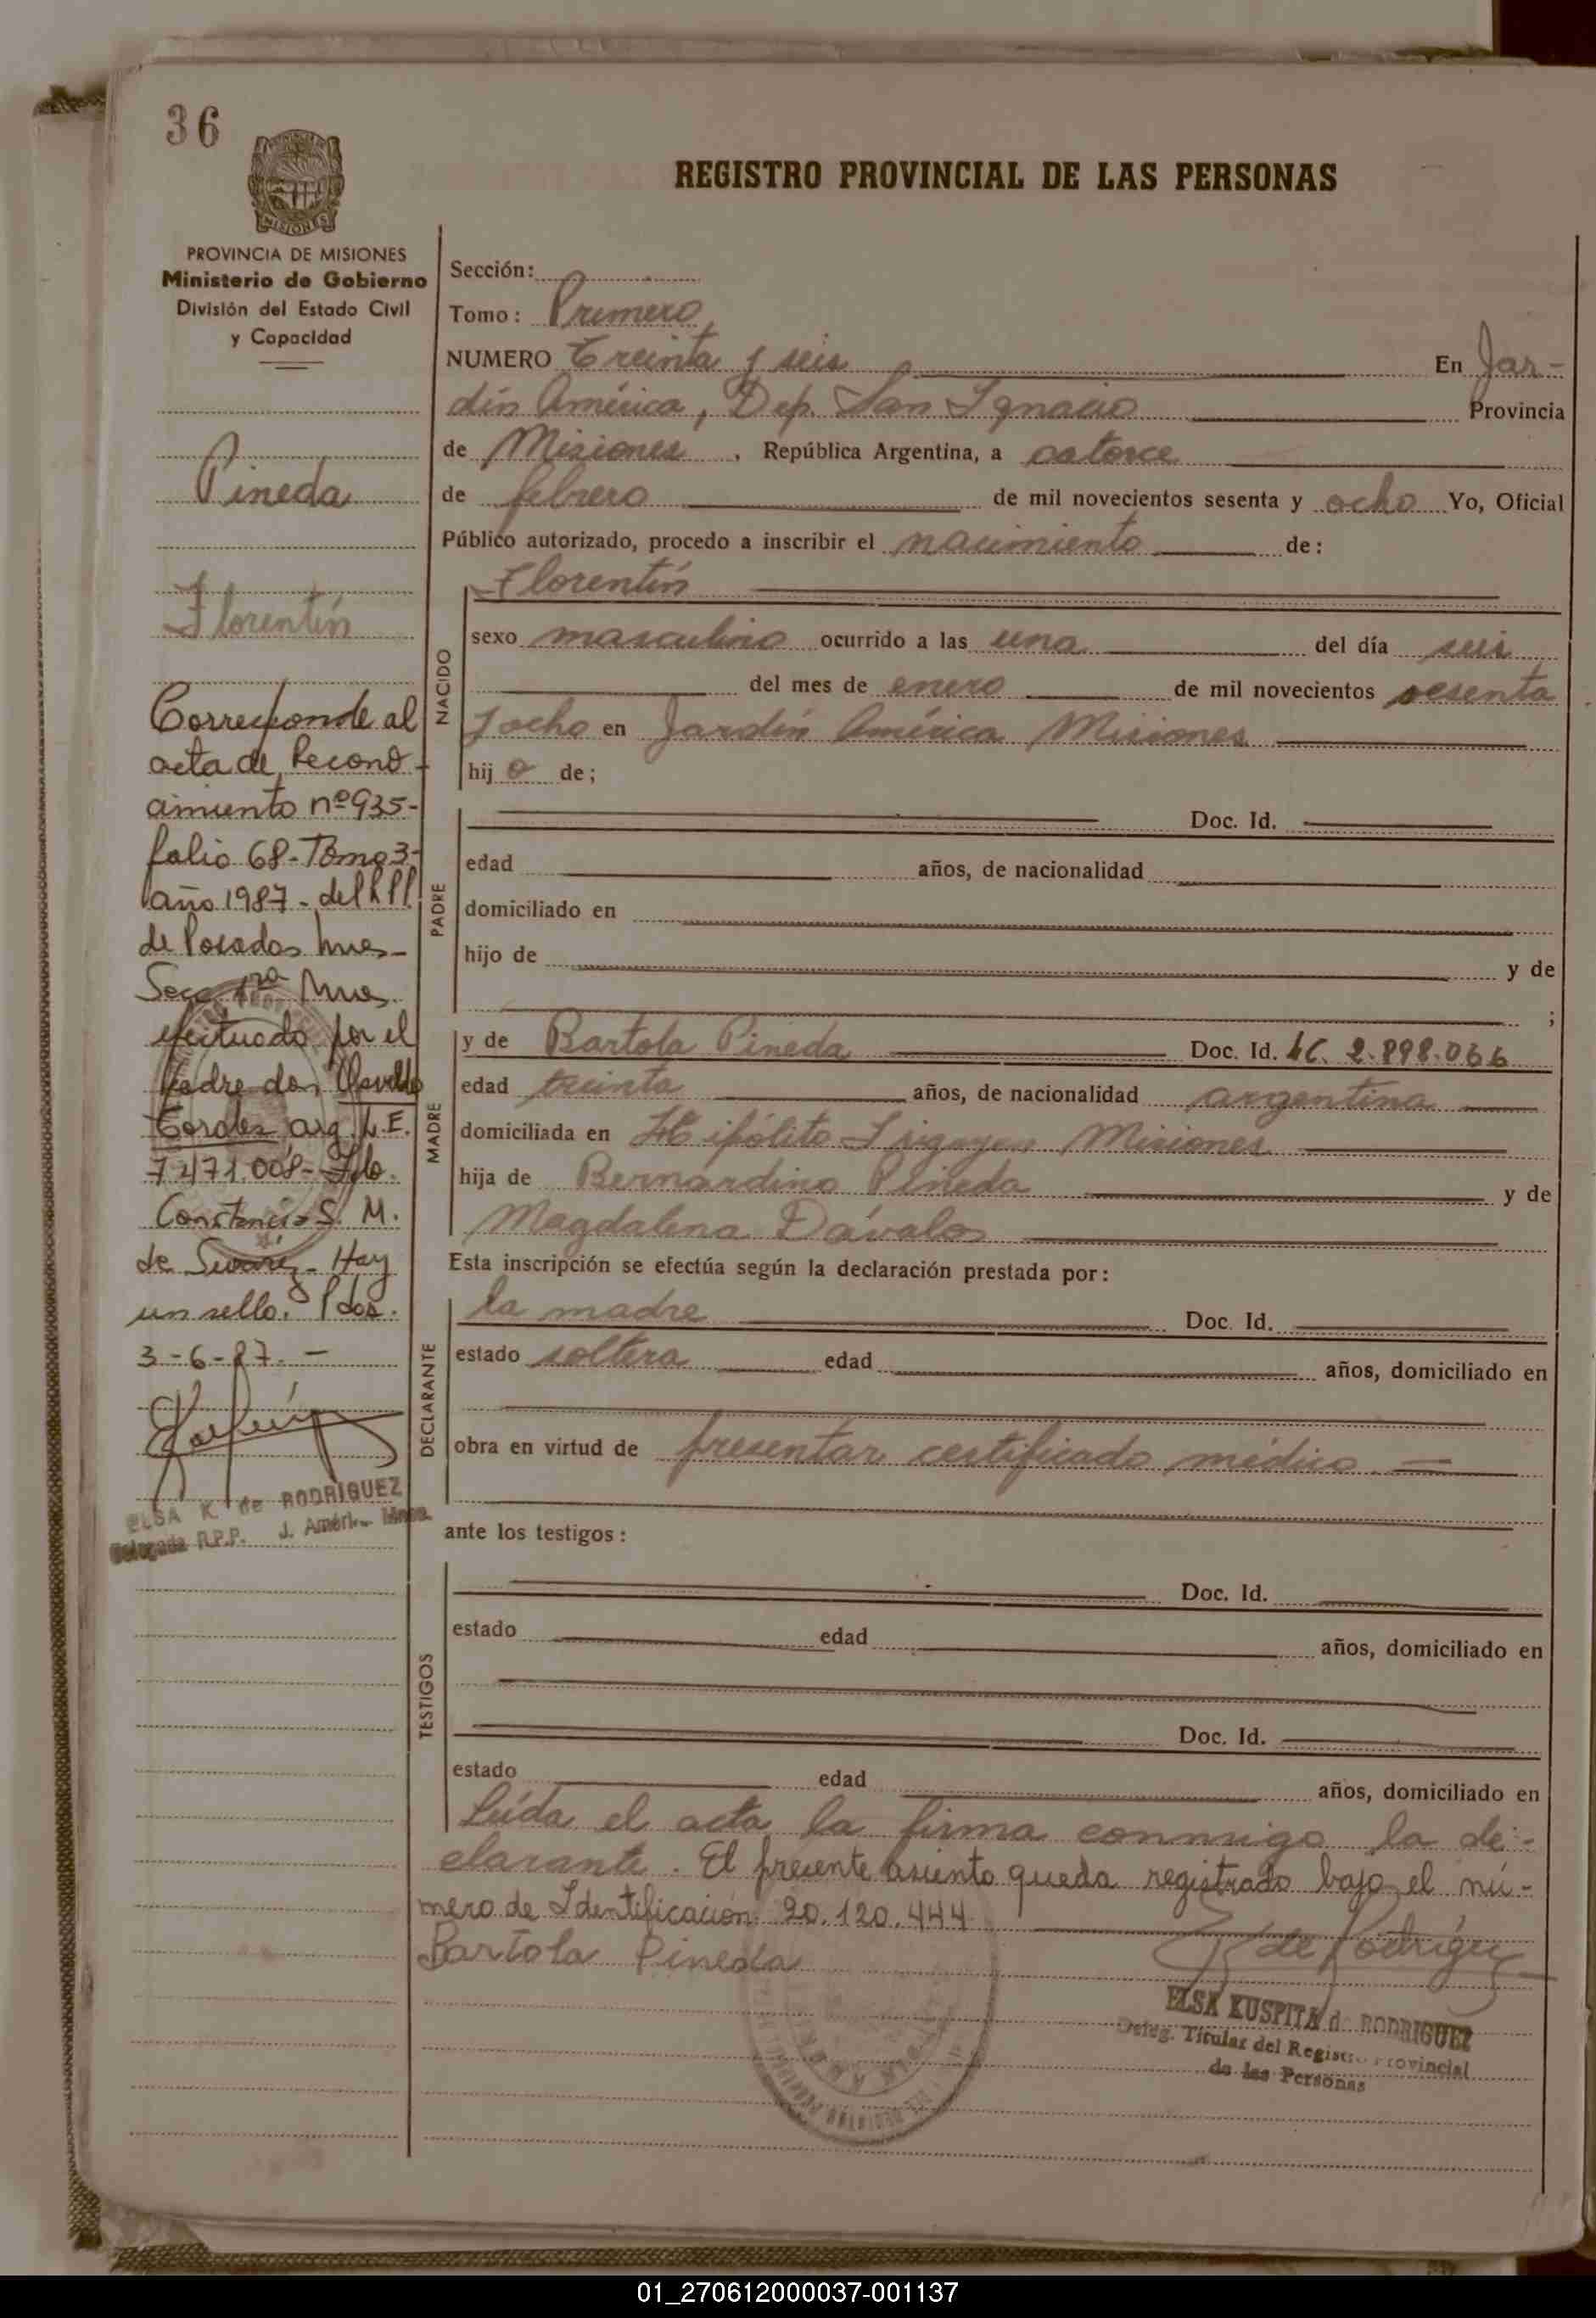 36
REGISTRO PROVINCIAL DE LAS PERSONAS
MISIONES
PROVINCIA DE MISIONES
Ministerio de Gobierno
División del Estado Civil
y Capacidad
Pineda
Florentín
Corresponde al
acta de Recono-
cimiento nº 935-
folio 68-Tomo 3-
año 1987- del
de Posadas Mnes-
Secc 1ra Mnes.
efectuado por el
padre don Osvaldo
Corales arg. L.E.
7.471.008- Fdo.
Constancia S. M.
de Suárez- Hay
un sello. Pdas.
3-6-87.-
ELSA K. de RODRIGUEZ
Delegada R.P.P. J. Améri.. Mnes.
Sección:
Tomo: Primero
NUMERO Treinta y seis En Jar-
dín América, Dep. San Ignacio Provincia
de Misiones, República Argentina, a catorce
de febrero de mil novecientos sesenta y ocho Yo, Oficial
Público autorizado, procedo a inscribir el nacimiento de:
NACIDO
Florentín
sexo masculino ocurrido a las una del día seis
del mes de enero de mil novecientos sesenta
y ocho en Jardín América Misiones
hij o de;
PADRE
Doc. Id.
edad años, de nacionalidad
domiciliado en
hijo de y de
;
MADRE
y de Bartola Pineda Doc. Id. LC. 2.898.066
edad treinta años, de nacionalidad argentina
domiciliada en Hipólito Irigoyen Misiones
hija de Bernardino Pineda y de
Magdalena Dávalos
Esta inscripción se efectúa según la declaración prestada por:
DECLARANTE
la madre Doc. Id.
estado soltera edad años, domiciliado en
obra en virtud de presentar certificado médico.-
ante los testigos:
TESTIGOS
Doc. Id.
estado edad años, domiciliado en
Doc. Id.
estado edad años, domiciliado en
Leída el acta la firma conmigo la de-
clarante. El presente asiento queda registrado bajo el nú-
mero de Identificación: 20.120.444
Bartola Pineda
E K de Rodríguez
ELSA KUSPITA d. RODRIGUEZ
Deleg. Titular del Registro Provincial
de las Personas
01_270612000037-001137